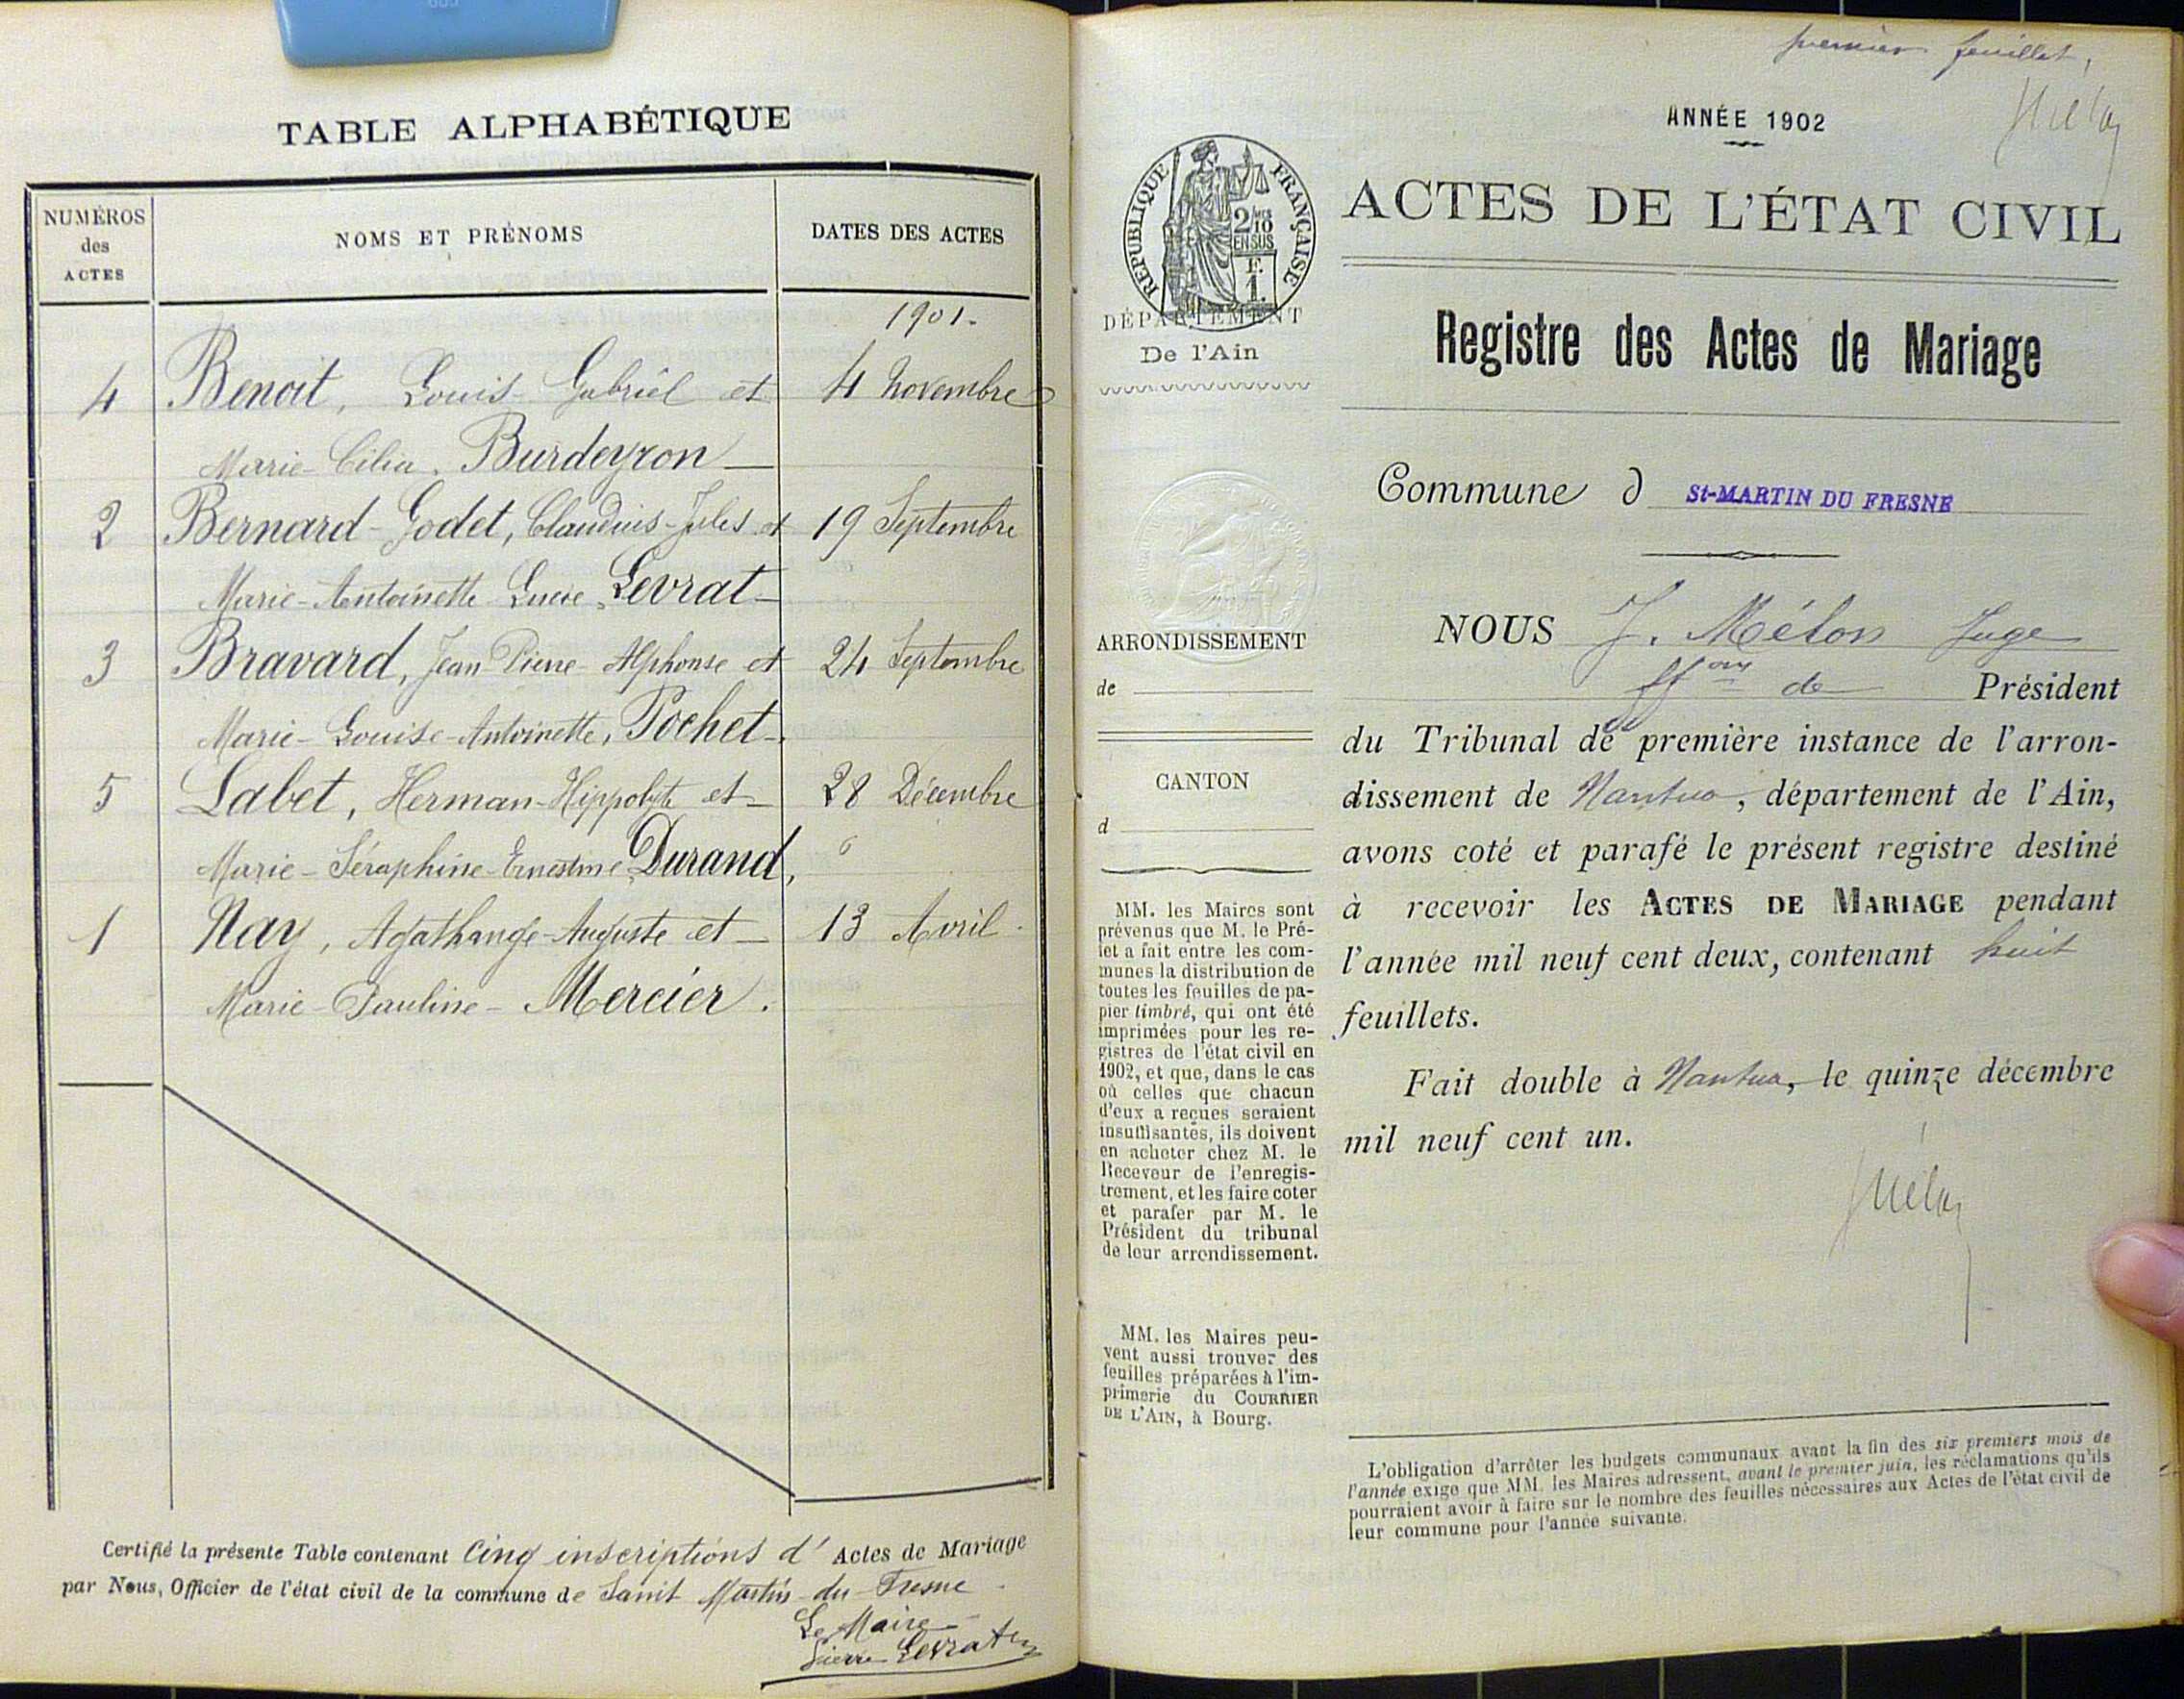 TABLE ALPHABÉTIQUE
NUMÉROS des ACTES
NOMS ET PRÉNOMS
DATES DES ACTES
1901.
4 Benoit, Louis-Gabriel et 4 Novembre
Marie-Célia, Burdeyron
2 Bernard-Godet, Claudius-Jules et 19 Septembre
Marie-Antoinette-Lucie, Levrat
3 Bravard, Jean Pierre-Alphonse et 24 Septembre
Marie-Louise-Antoinette, Pochet
5 Labet, Herman-Hippolyte et 28 Décembre
Marie-Séraphine-Ernestine, Durand,
1 Nay, Agathange-Auguste et 13 Avril.
Marie-Pauline-Mercier.
Certifié la présente Table contenant Cinq inscriptions d'Actes de Mariage
par Nous, Officier de l'état civil de la commune de Saint Martin-du-Fresne
Le Maire
Pierre Levrat
premier feuillet,
ANNÉE 1902
RÉPUBLIQUE FRANÇAISE
2/10 EN SUS
F. 1.
DÉPARTEMENT
De l'Ain
ACTES DE L'ÉTAT CIVIL
Registre des Actes de Mariage
Commune d St-MARTIN DU FRESNE
ARRONDISSEMENT
de
CANTON
d
MM. les Maires sont
prévenus que M. le Pré-
fet a fait entre les com-
munes la distribution de
toutes les feuilles de pa-
pier timbré, qui ont été
imprimées pour les re-
gistres de l'état civil en
1902, et que, dans le cas
où celles que chacun
d'eux a reçues seraient
insuffisantes, ils doivent
en acheter chez M. le
Receveur de l'enregis-
trement, et les faire coter
et parafer par M. le
Président du tribunal
de leur arrondissement.
MM. les Maires peu-
vent aussi trouver des
feuilles préparées à l'im-
primerie du COURRIER
DE L'AIN, à Bourg.
NOUS J. Mélon Juge
ffons de Président
du Tribunal de première instance de l'arron-
dissement de Nantua, département de l'Ain,
avons coté et parafé le présent registre destiné
à recevoir les ACTES DE MARIAGE pendant
l'année mil neuf cent deux, contenant huit
feuillets.
Fait double à Nantua, le quinze décembre
mil neuf cent un.
L'obligation d'arrêter les budgets communaux avant la fin des six premiers mois de
l'année exige que MM. les Maires adressent, avant le premier juin, les réclamations qu'ils
pourraient avoir à faire sur le nombre des feuilles nécessaires aux Actes de l'état civil de
leur commune pour l'année suivante.